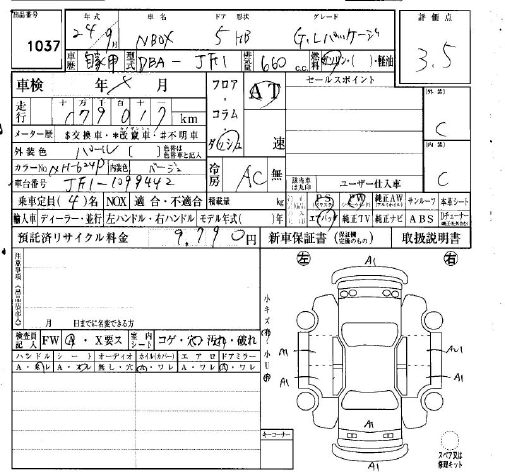 出品番号 1037
年式 車名 ドア 形状 グレード 評価点
24 9月 NBOX 5 HB G.Lパッケージ 3.5
車歴 自家用 型式 DBA-JF1 排気量 660 c.c. 燃料 ガソリン・( )・軽油
車検 年 月 フロア・コラム・ダッシュ AT 速 セールスポイント 外装 C
走行 十万 万 千 百 十 一 179017 km
メーター歴 $交換車・*改竄車・#不明車
外装色 パール [ ] 色替は色替車と記入
カラーNo NH-624P 内装色 ベージュ 冷房 AC 無 内装 C
車台番号 JF1-1099442 該当車は丸印 ユーザー仕入車
乗車定員(4)名 NOX 適合・不適合 積載量 kg PS PW 純正AW サンルーフ 本革シート
輸入車 ディーラー・並行 左ハンドル・右ハンドル モデル年式( )年 エアバッグ 純正TV 純正ナビ ABS
預託済リサイクル料金 9,790円 新車保証書 取扱説明書
注意事項
月 日までに名変できる方
検査員記入 FW A・X要ス 室内シート コゲ・穴・汚れ・破れ
ハンドル シート オーディオ ホイル(カバー) エアロ ドアミラー
左 右
A1
A1 AU1
A1 A1
A1
A1
キーコーナー
スペア又は修理キット